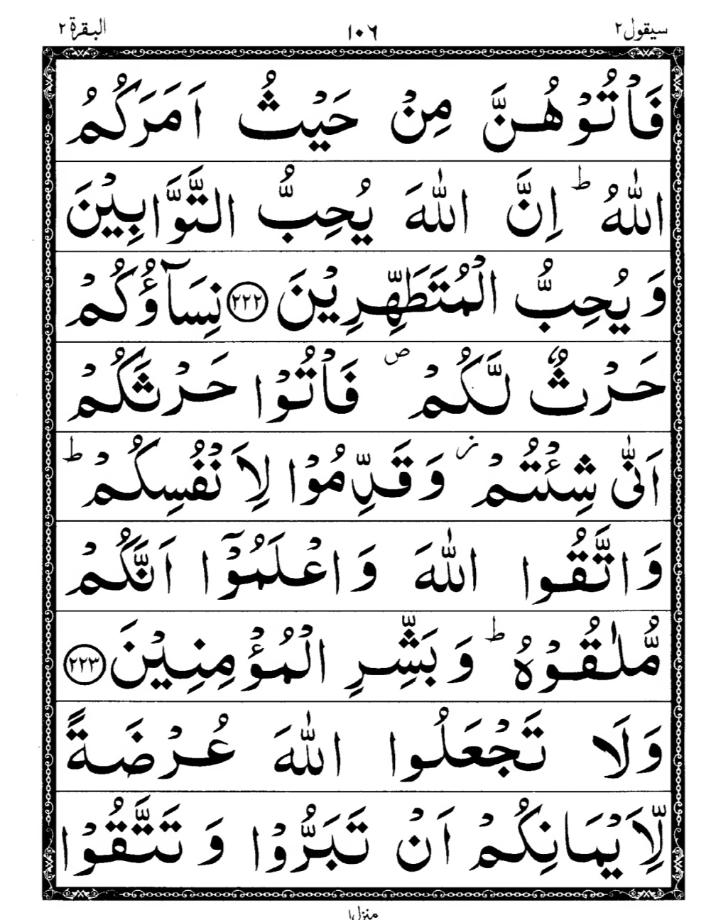 البقرة ٢ ١٠٦ سيقول ٢
فَاۡتُوۡهُنَّ مِنۡ حَيۡثُ اَمَرَكُمُ
اللّٰهُ ؕ اِنَّ اللّٰهَ يُحِبُّ التَّوَّابِيۡنَ
وَيُحِبُّ الۡمُتَطَهِّرِيۡنَ ﴿٢٢٢﴾ نِسَآؤُكُمۡ
حَرۡثٌ لَّكُمۡ ۖ فَاۡتُوۡا حَرۡثَكُمۡ
اَنّٰى شِئۡتُمۡ ز وَقَدِّمُوۡا لِاَنۡفُسِكُمۡ ؕ
وَاتَّقُوا اللّٰهَ وَاعۡلَمُوۡۤا اَنَّكُمۡ
مُّلٰقُوۡهُ ؕ وَبَشِّرِ الۡمُؤۡمِنِيۡنَ ﴿٢٢٣﴾
وَلَا تَجۡعَلُوا اللّٰهَ عُرۡضَةً
لِّاَيۡمَانِكُمۡ اَنۡ تَبَرُّوۡا وَتَتَّقُوۡا
منزل ١